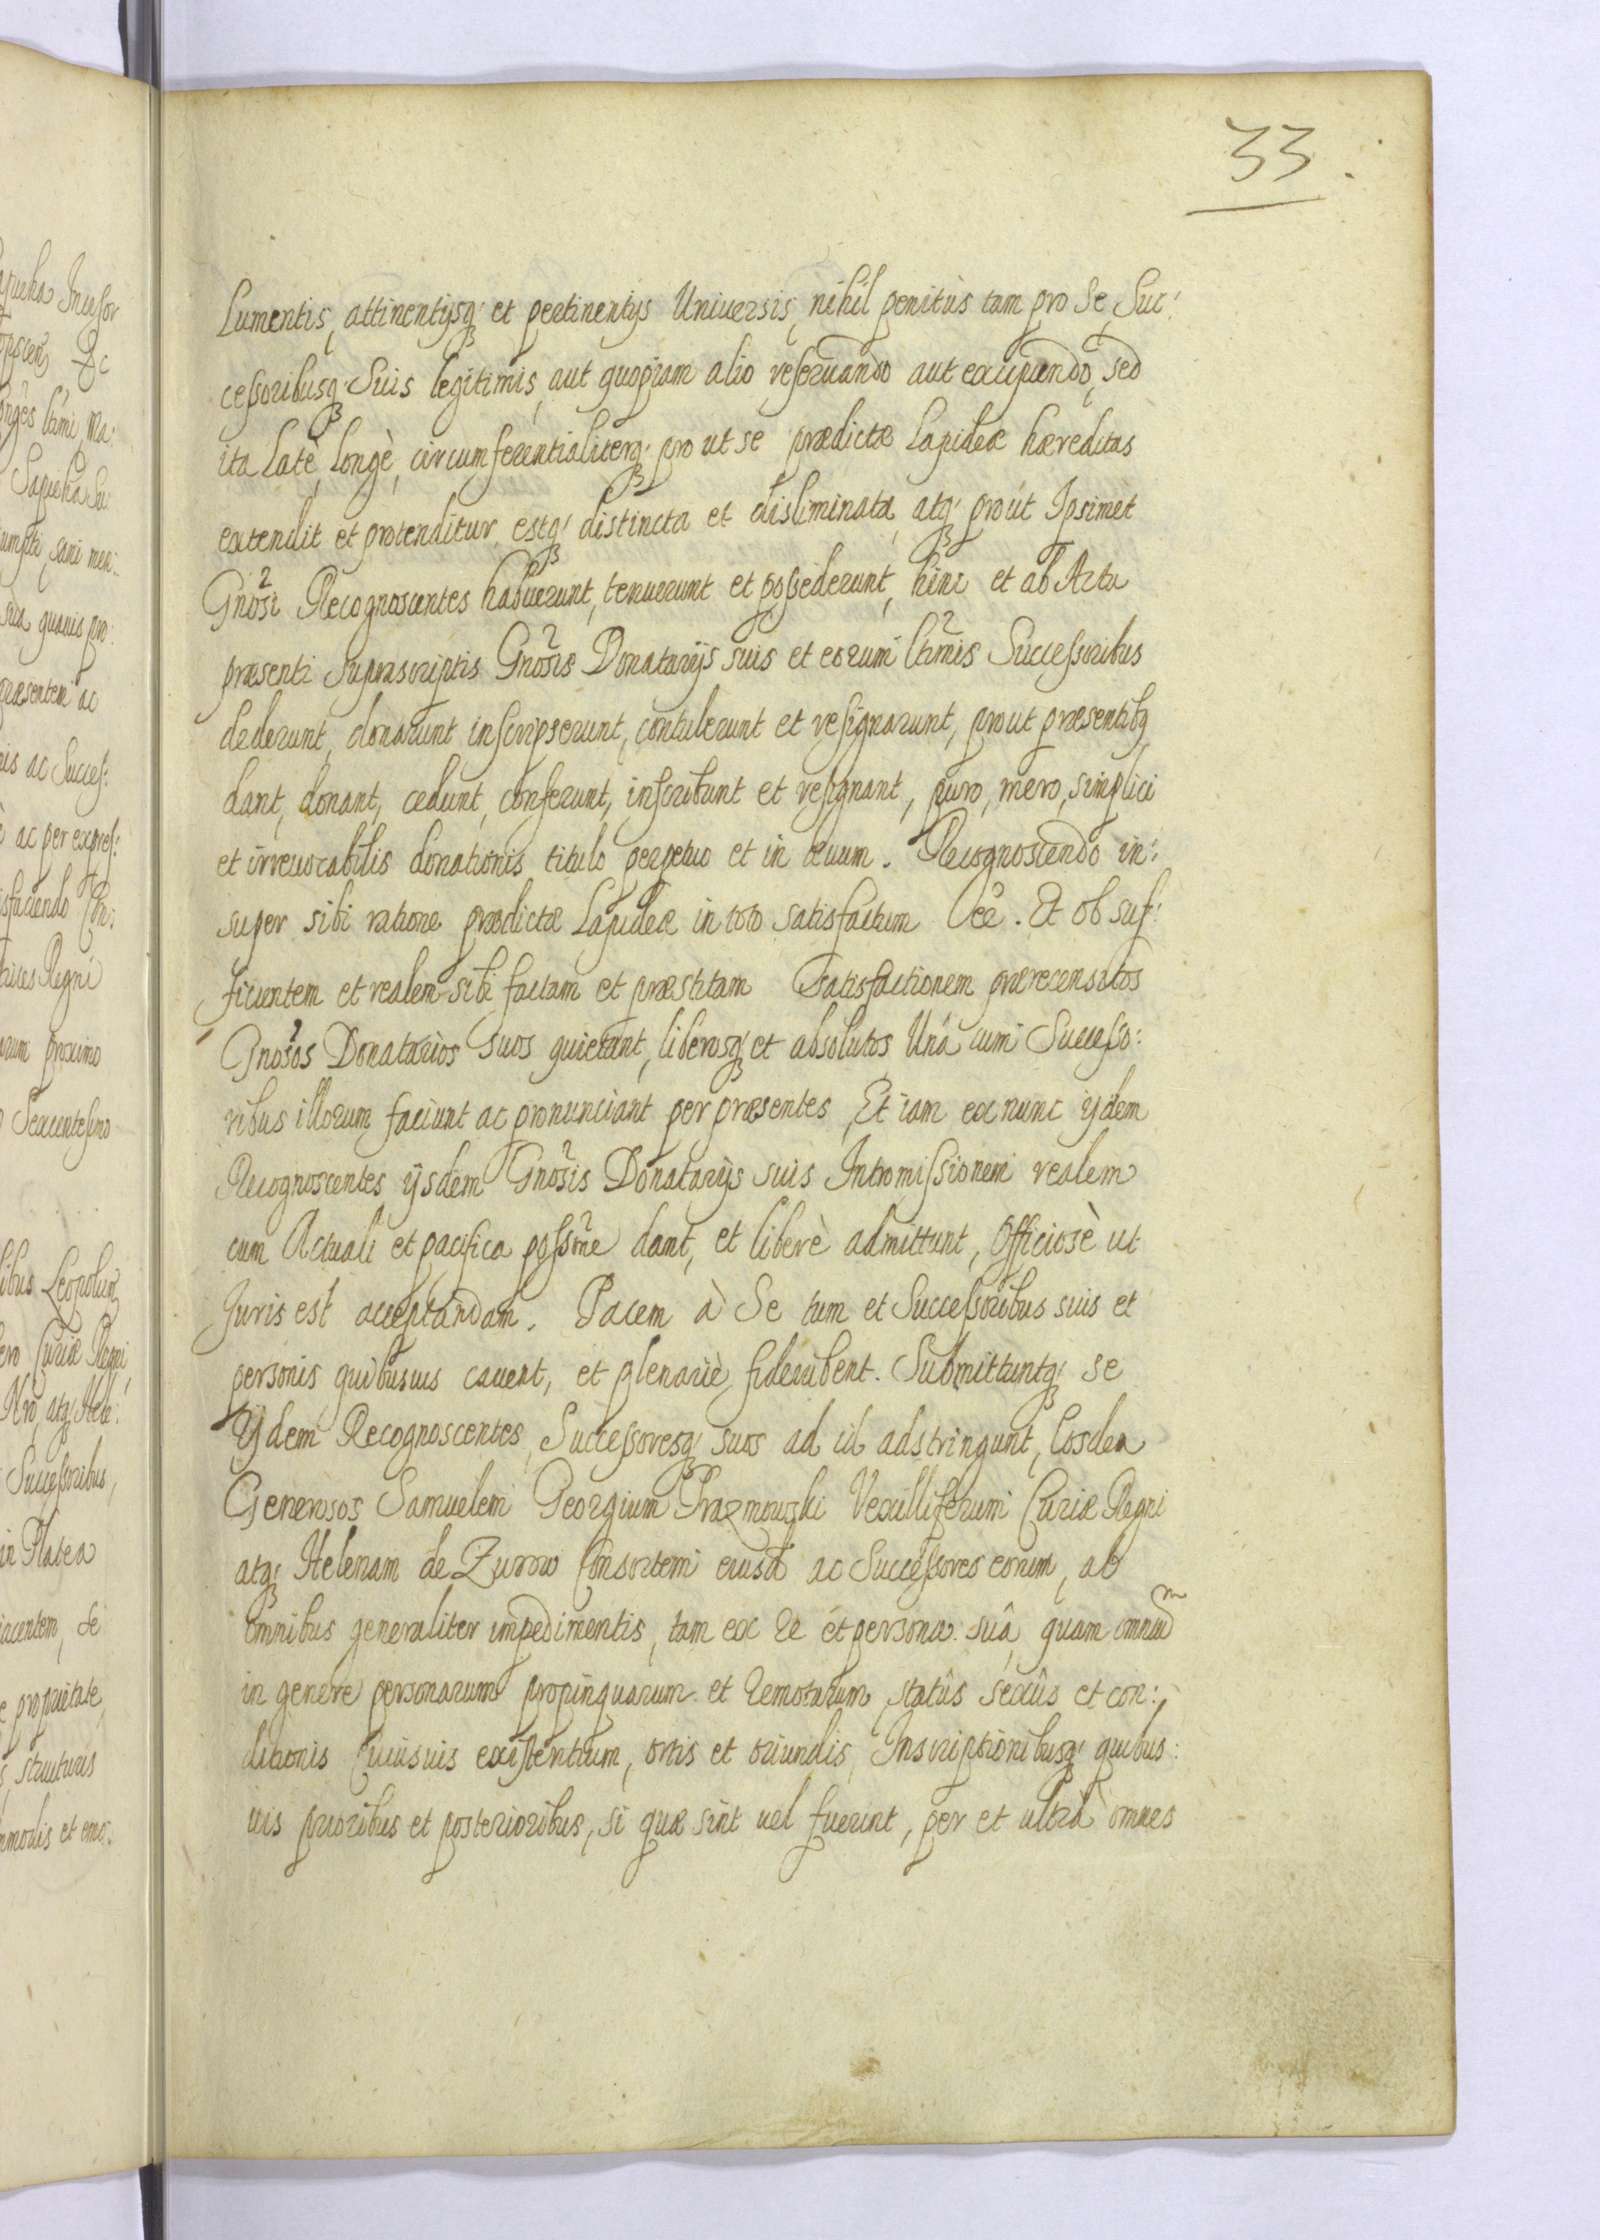 33.
lumentis, attinentijsq́ et pertinentijs Uniuersis, nihil penitùs tam pro Se, Suc:
cessoribusq́ Suis legitimis, aut quopiam alio reseruando aut excipiendo, sed
ita Latè, Longè, circumferentialiterq́ pro ut se prædictæ Lapideæ hæreditas
extendit et protenditur, estq́ distincta et disliminata, atq́ proút Ipsimèt
Gnosi Recognoscentes habuerunt, tenuerunt et possederunt, hinc et ab Actu
præsenti suprascriptis Gnosis Donatarijs suis et eorum Ltimis Successoribus
dederunt, donarunt inscripserunt, contulerunt et resignarunt, prout præsentibq
dant, donant, cedunt, conferunt, inscribunt et resignant, puro, mero, simplici
et irreuocabilis donationis titulo perpetuo et in æuum. Recognoscendo in:
super sibi ratione prædictæ Lapideæ in toto satisfactum ee͂. Et ob suf:
ficientem et realem sibi factam et præstitam Satisfactionem prærecensitos
Gnosos Donatarios suos quietant, liberosq́ et absolutos Unà cum Successo:
ribus illorum faciunt ac pronunciant per præsentes, Et iam ex nunc ijdem
Recognoscentes ijsdem Gnosis Donatarijs suis Intromissionem realem
cum Actuali et pacifica possne dant, et liberè admittunt, Officiosè ut
Juris est acceptandam. Pacem à Se tum et Successoribus suis et
personis quibusuis cauent, et plenariè fideiubent. Submittuntq́ se
Ijdem Recognoscentes, Successoresq́ suos ad id adstringunt, Eosdem
Generosos Samuelem Georgium Prazmowski Vexilliferum Curiæ Regni
atq́ Helenam de Zurow Consortem eiusd ac Successores eorum, ab
omnibus generaliter impedimentis, tam ex re et persona suâ, quam omniu͂
in genere personarum propinquarum et remotarum, statûs sexûs et con:
ditionis Cuiusuis existentium, ortis et oriundis, Inscriptionibusq́ quibus:
uis prioribus et posterioribus, si quæ sint uel fuerint, per et ultrà omnes